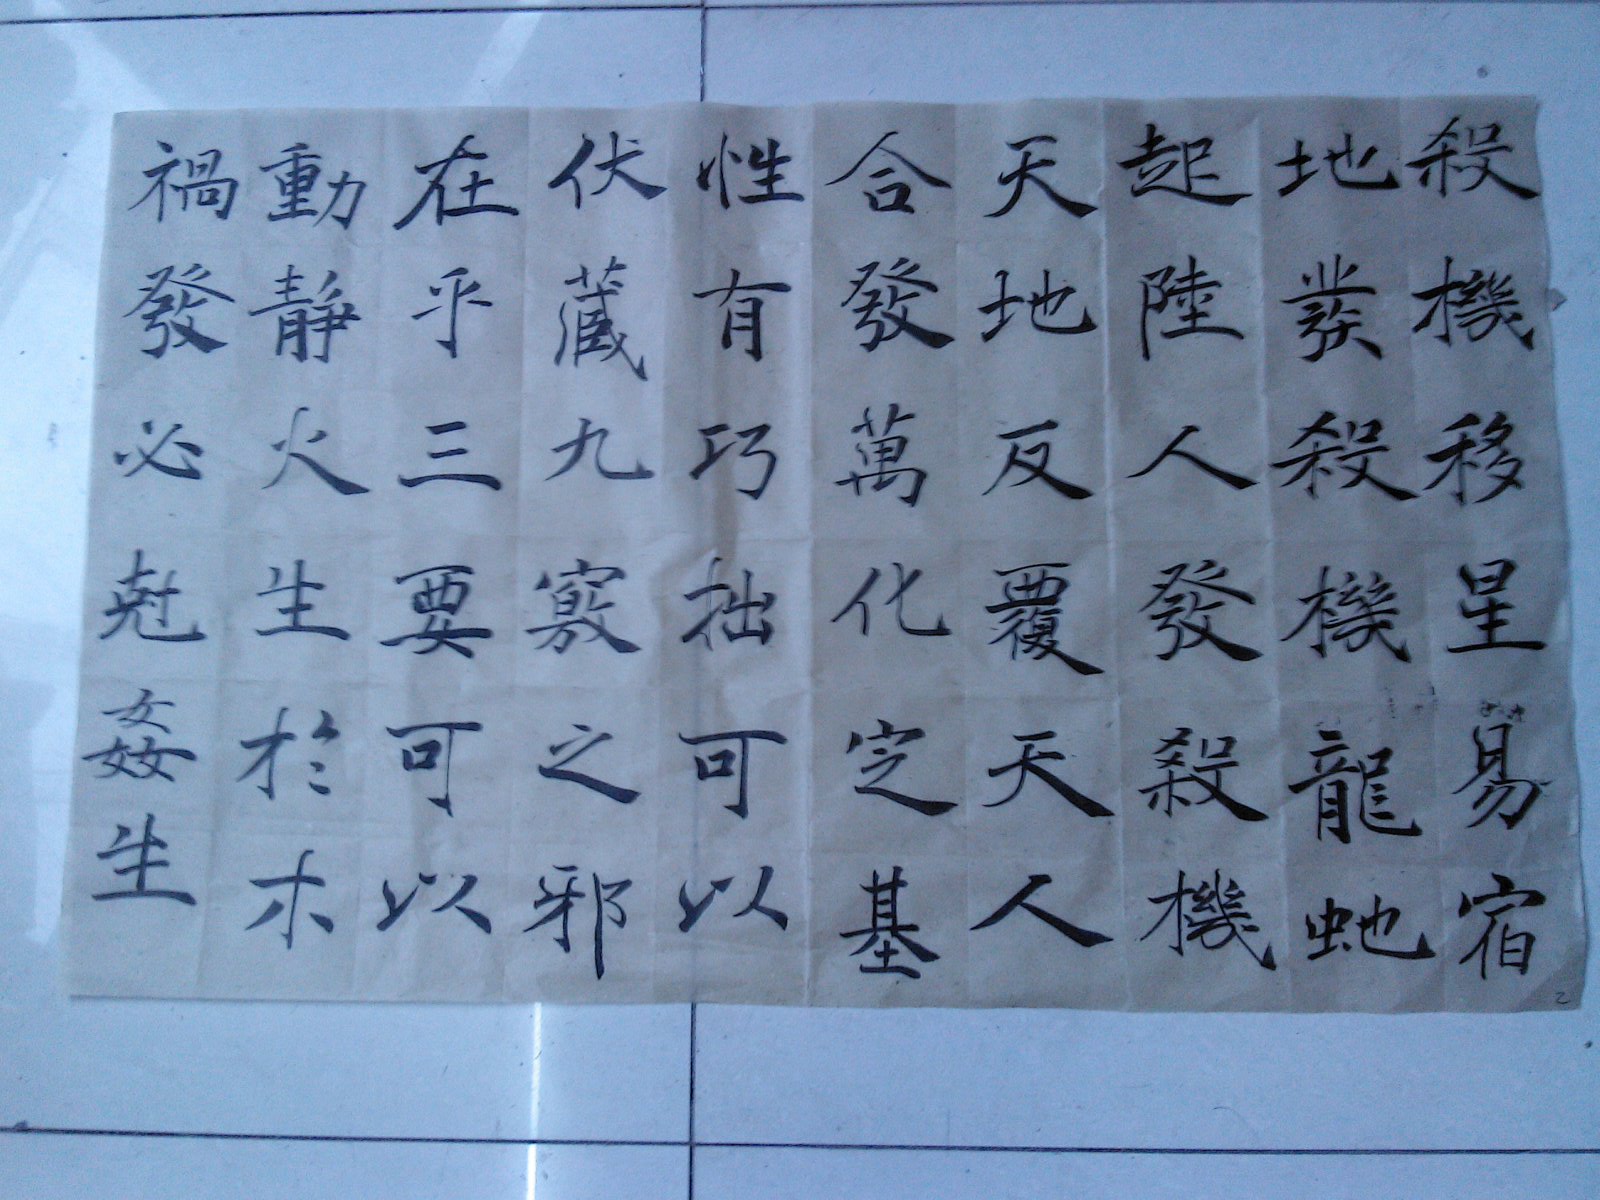 殺機移星易宿
地發殺機龍虵
起陸人發殺機
天地反覆天人
合發萬化定基
性有巧拙可以
伏藏九竅之邪
在乎三要可以
動静火生於木
禍發必尅姦生
2